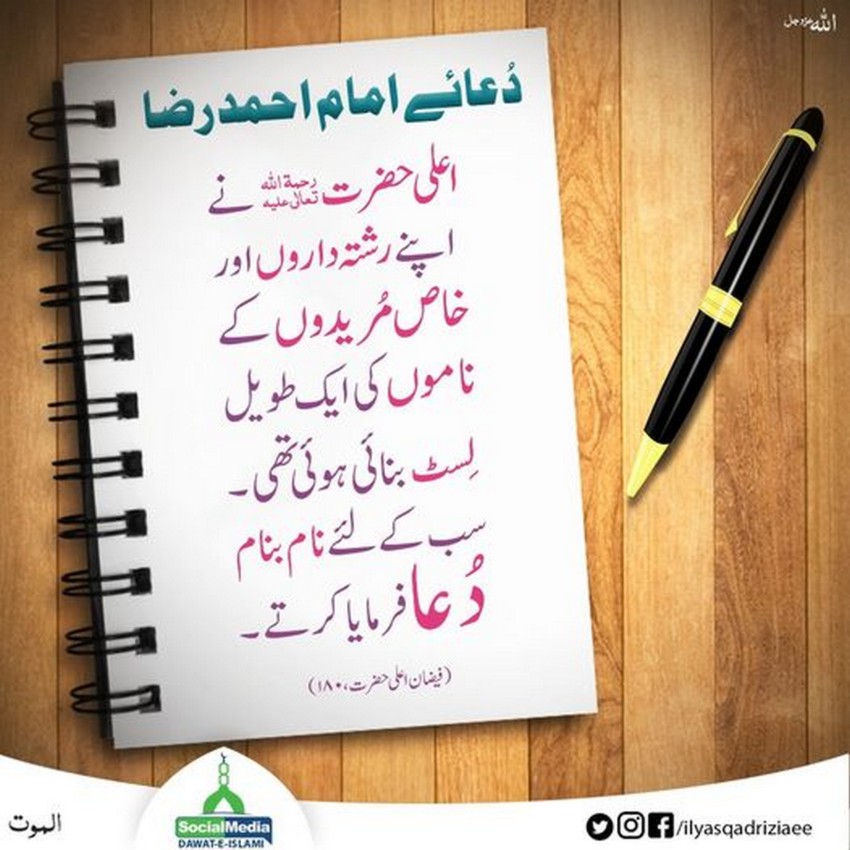 اللہ عزوجل
دُعائے امام احمد رضا
اعلیٰ حضرت رحمة الله تعالى عليه نے
اپنے رشتہ داروں اور
خاص مُریدوں کے
ناموں کی ایک طویل
لِسٹ بنائی ہوئی تھی۔
سب کے لئے نام بنام
دُعا فرمایا کرتے۔
(فیضان اعلیٰ حضرت، ۱۸۰)
الموت
SocialMedia
DAWAT-E-ISLAMI
/ilyasqadriziaee